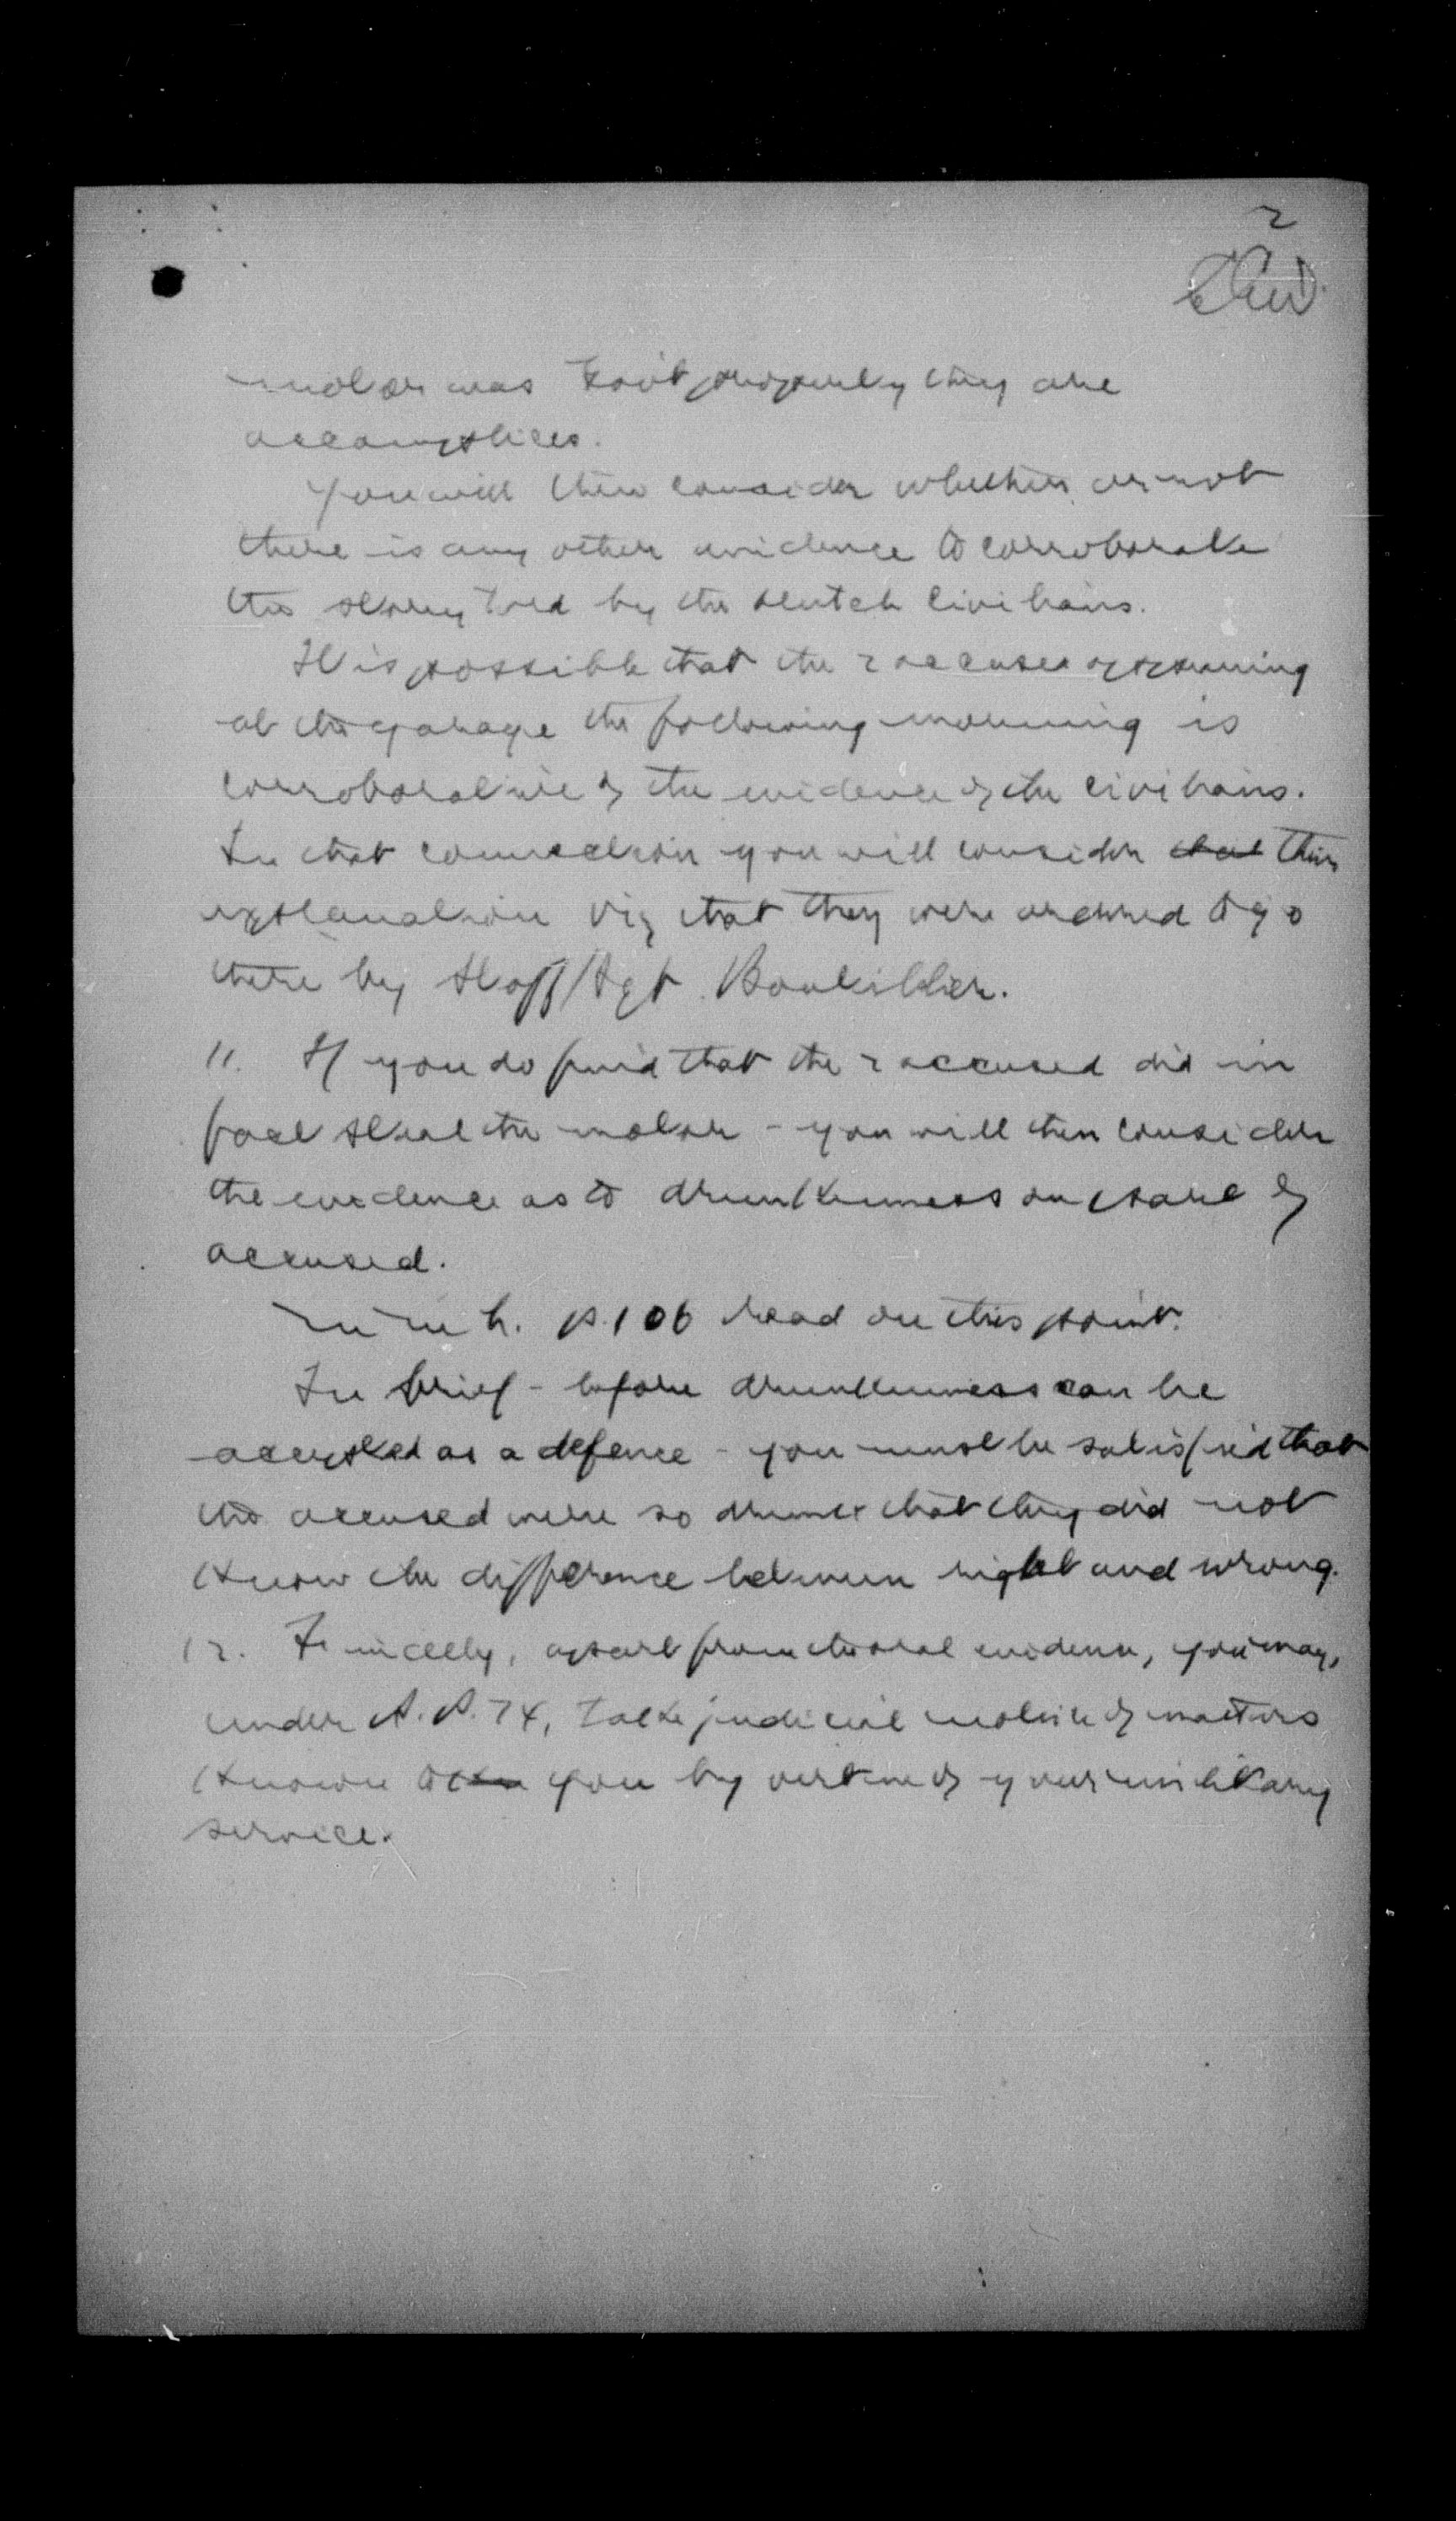 2
motor was Govt property they are
accomplices.
You will then consider whether or not
there is any other evidence to corroborate
the story told by the Dutch Civilians.
It is possible that the 2 accused appearing
at the garage the following morning is
corroborative of the evidence of the civilians.
In that connection you will consider that their
explanation viz that they were ordered to go
there by Staff/Sgt
11. If you do find that the 2 accused did in
fact steal the motor - you will then consider
the evidence as to drunkenness on part of
accused.
M.M.L. p. 106 read on this point.
In brief - before drunkenness can be
accepted as a defence - you must be satisfied that
the accused were so drunk that they did not
know the difference between right and wrong.
12. Finally, apart from the oral evidence, you may,
under R.P. 74, take judicial notice of matters
known to you by virtue of your military
service.